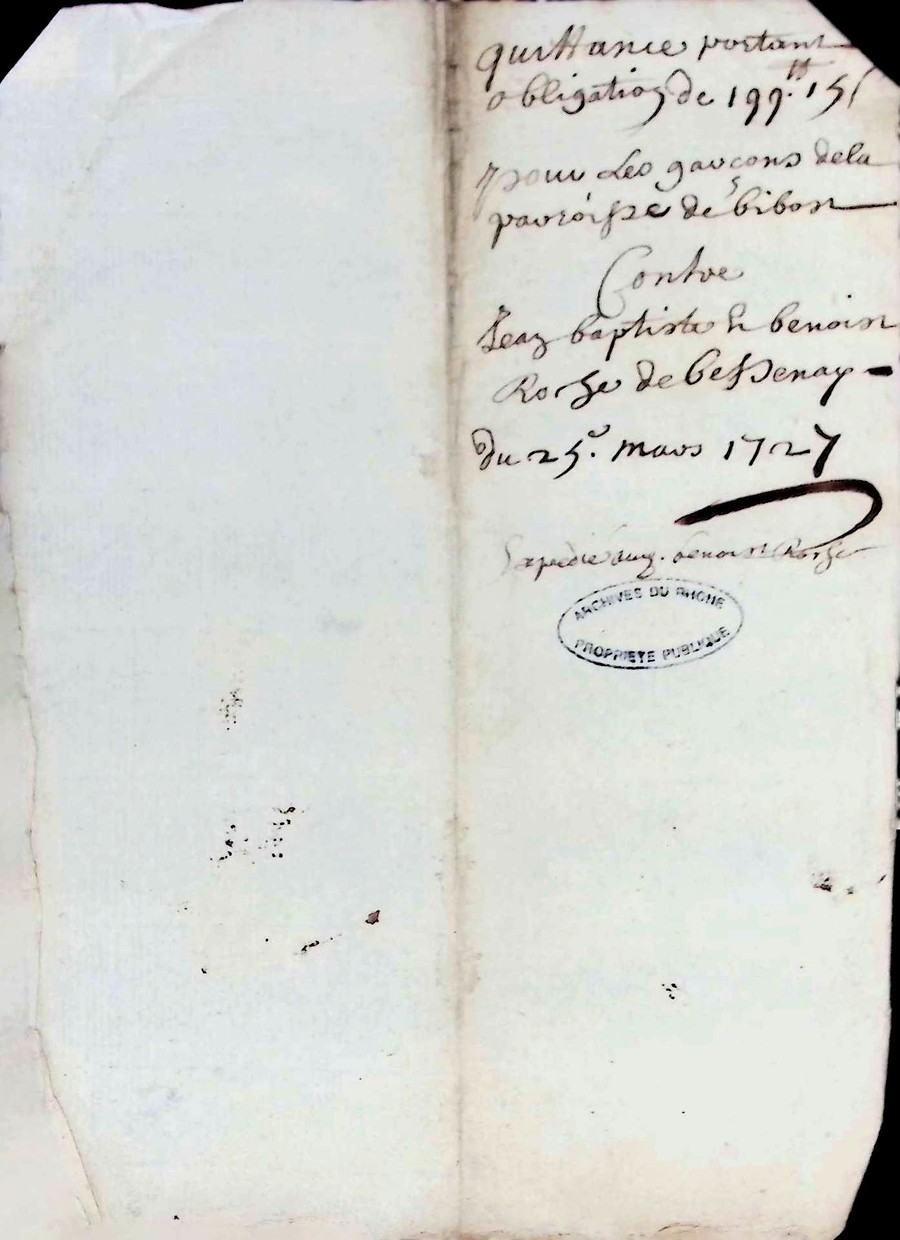 quittance portant
obligation de 199.ᵗᵗ 15ˢ
pour Les garçons dela
parroisse de bibost
Contre
Jean baptiste & benoist
Roche de bessenay
du 25.ᵉ mars 1727
Expedie aud. benoist Roche
ARCHIVES DU RHONE
PROPRIETE PUBLIQUE